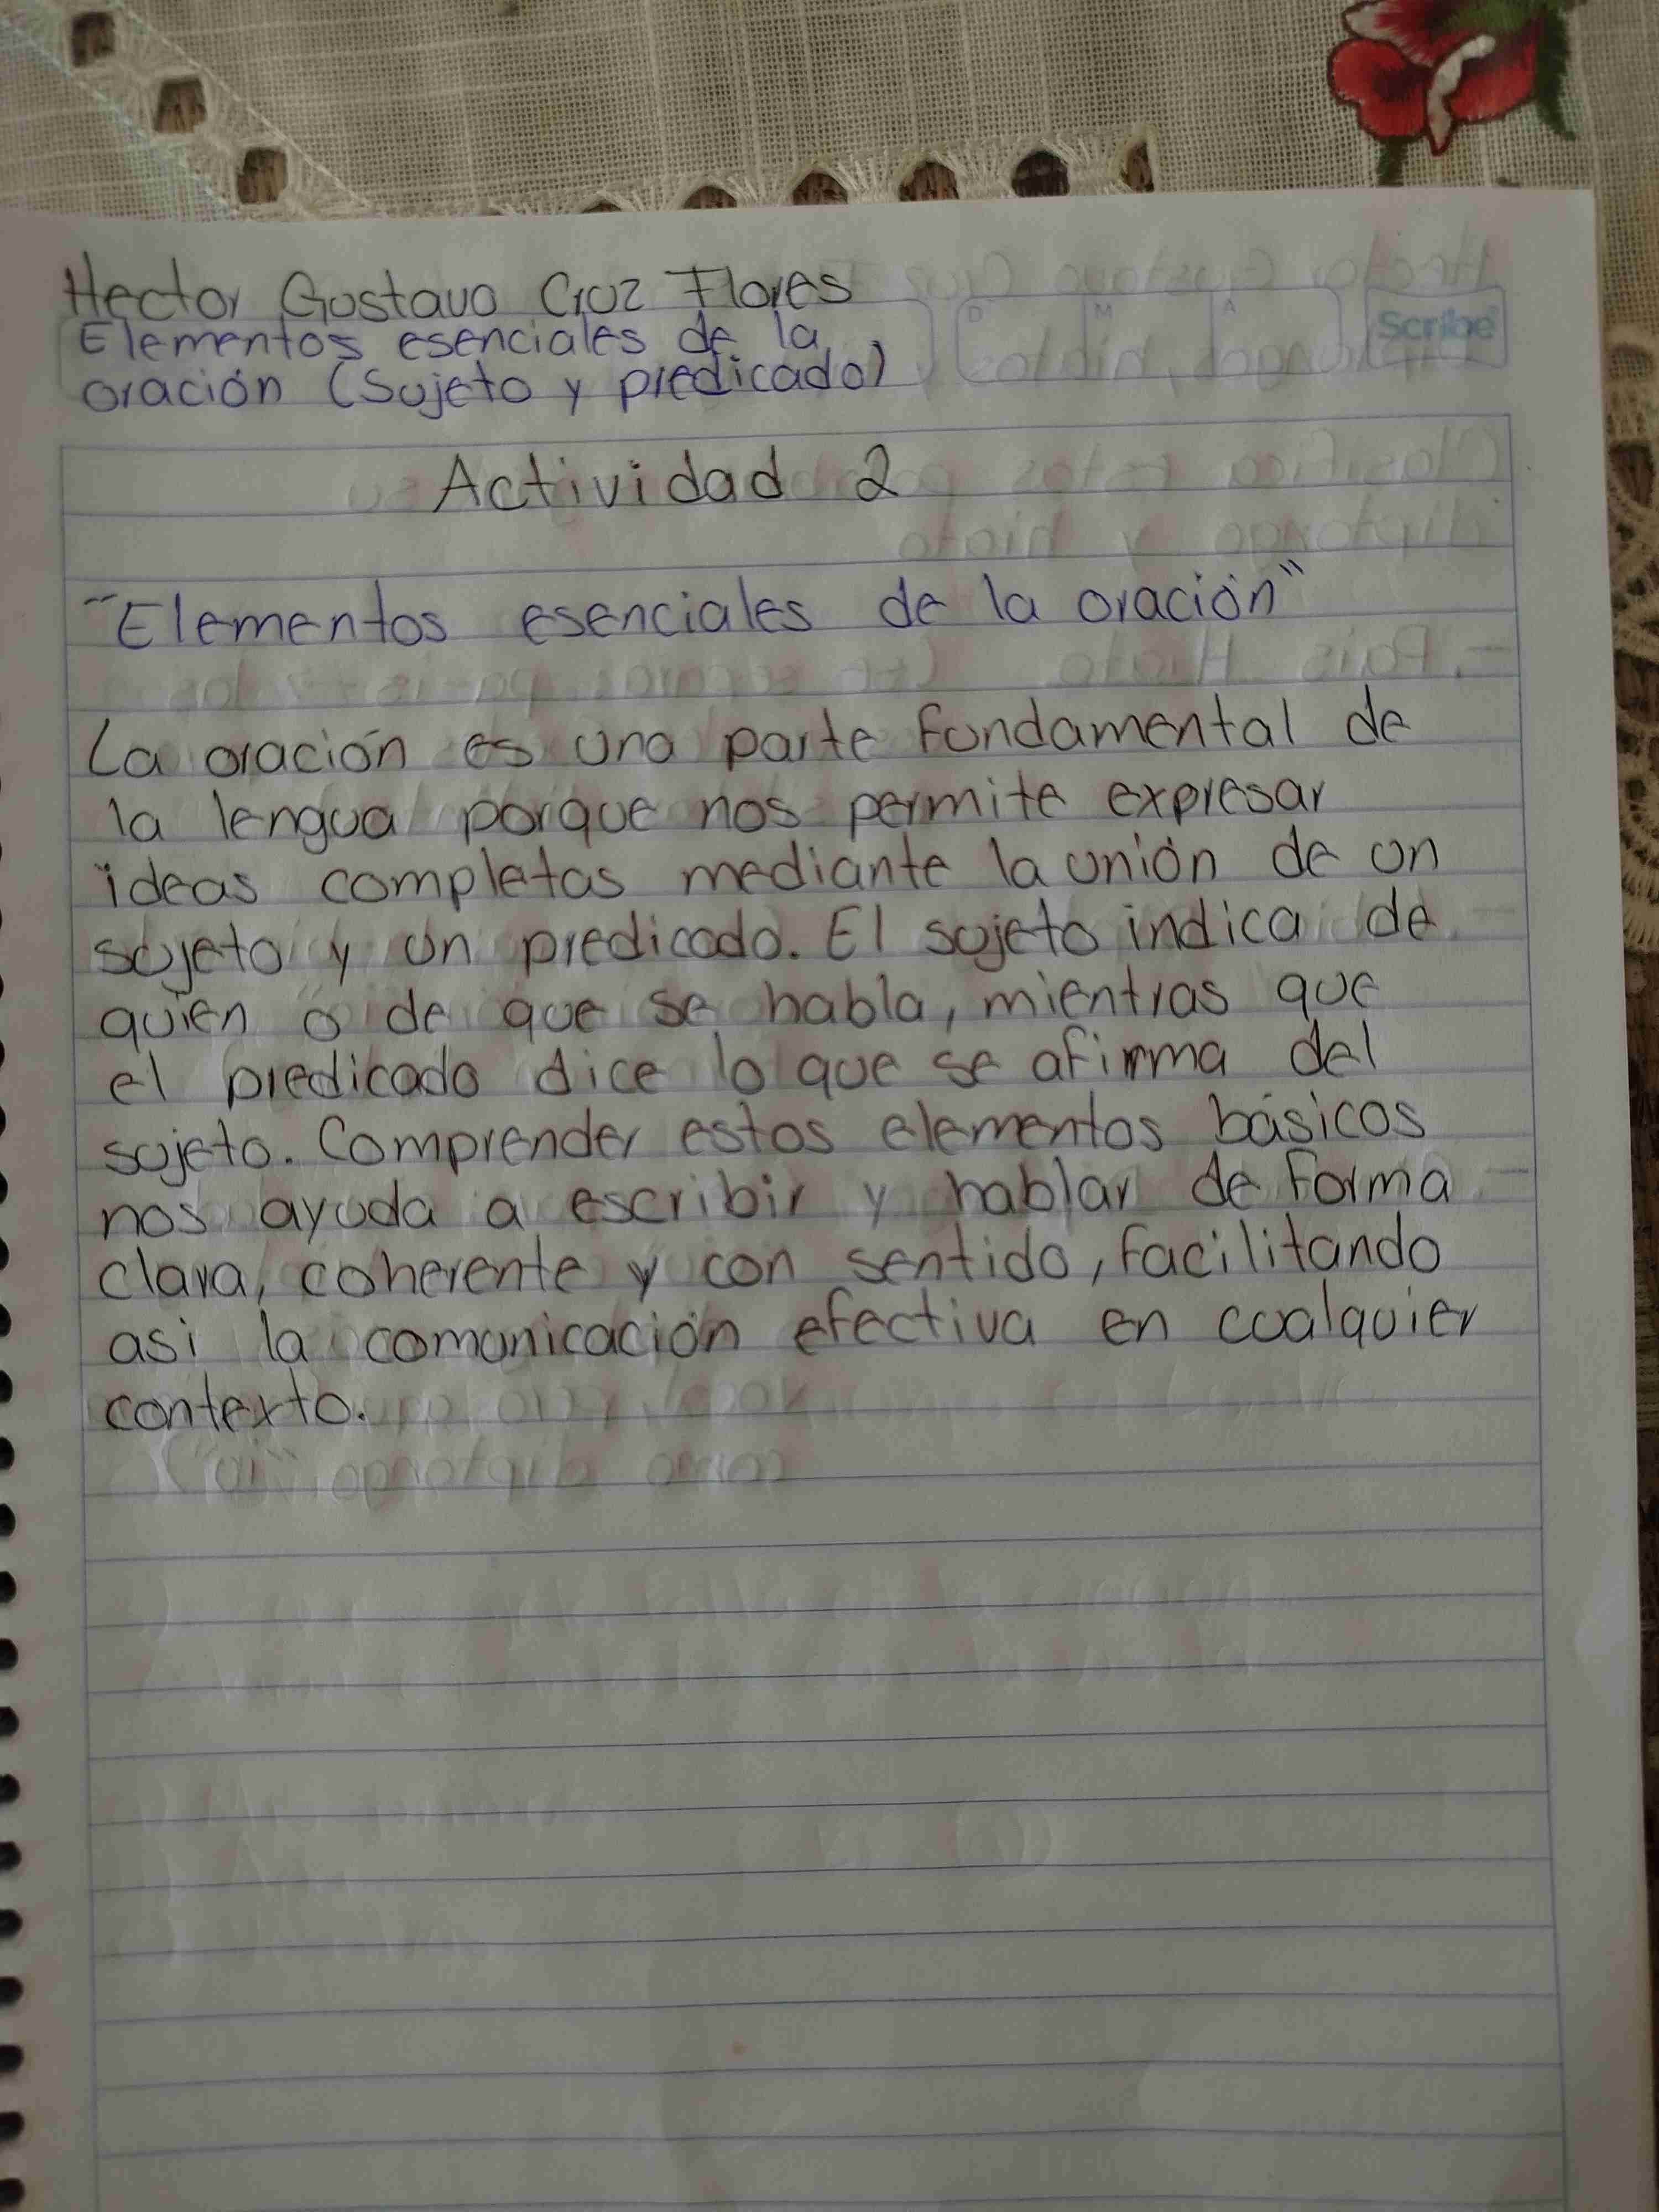 Hector Gustavo Cruz Flores
Elementos esenciales de la
oración (Sujeto y predicado)
D M A
Scribe
Actividad 2
"Elementos esenciales de la oración"
La oración es una parte fundamental de
la lengua porque nos permite expresar
ideas completas mediante la unión de un
sujeto y un predicado. El sujeto indica de
quien o de que se habla, mientras que
el predicado dice lo que se afirma del
sujeto. Comprender estos elementos básicos
nos ayuda a escribir y hablar de forma
clara, coherente y con sentido, facilitando
asi la comunicación efectiva en cualquier
contexto.